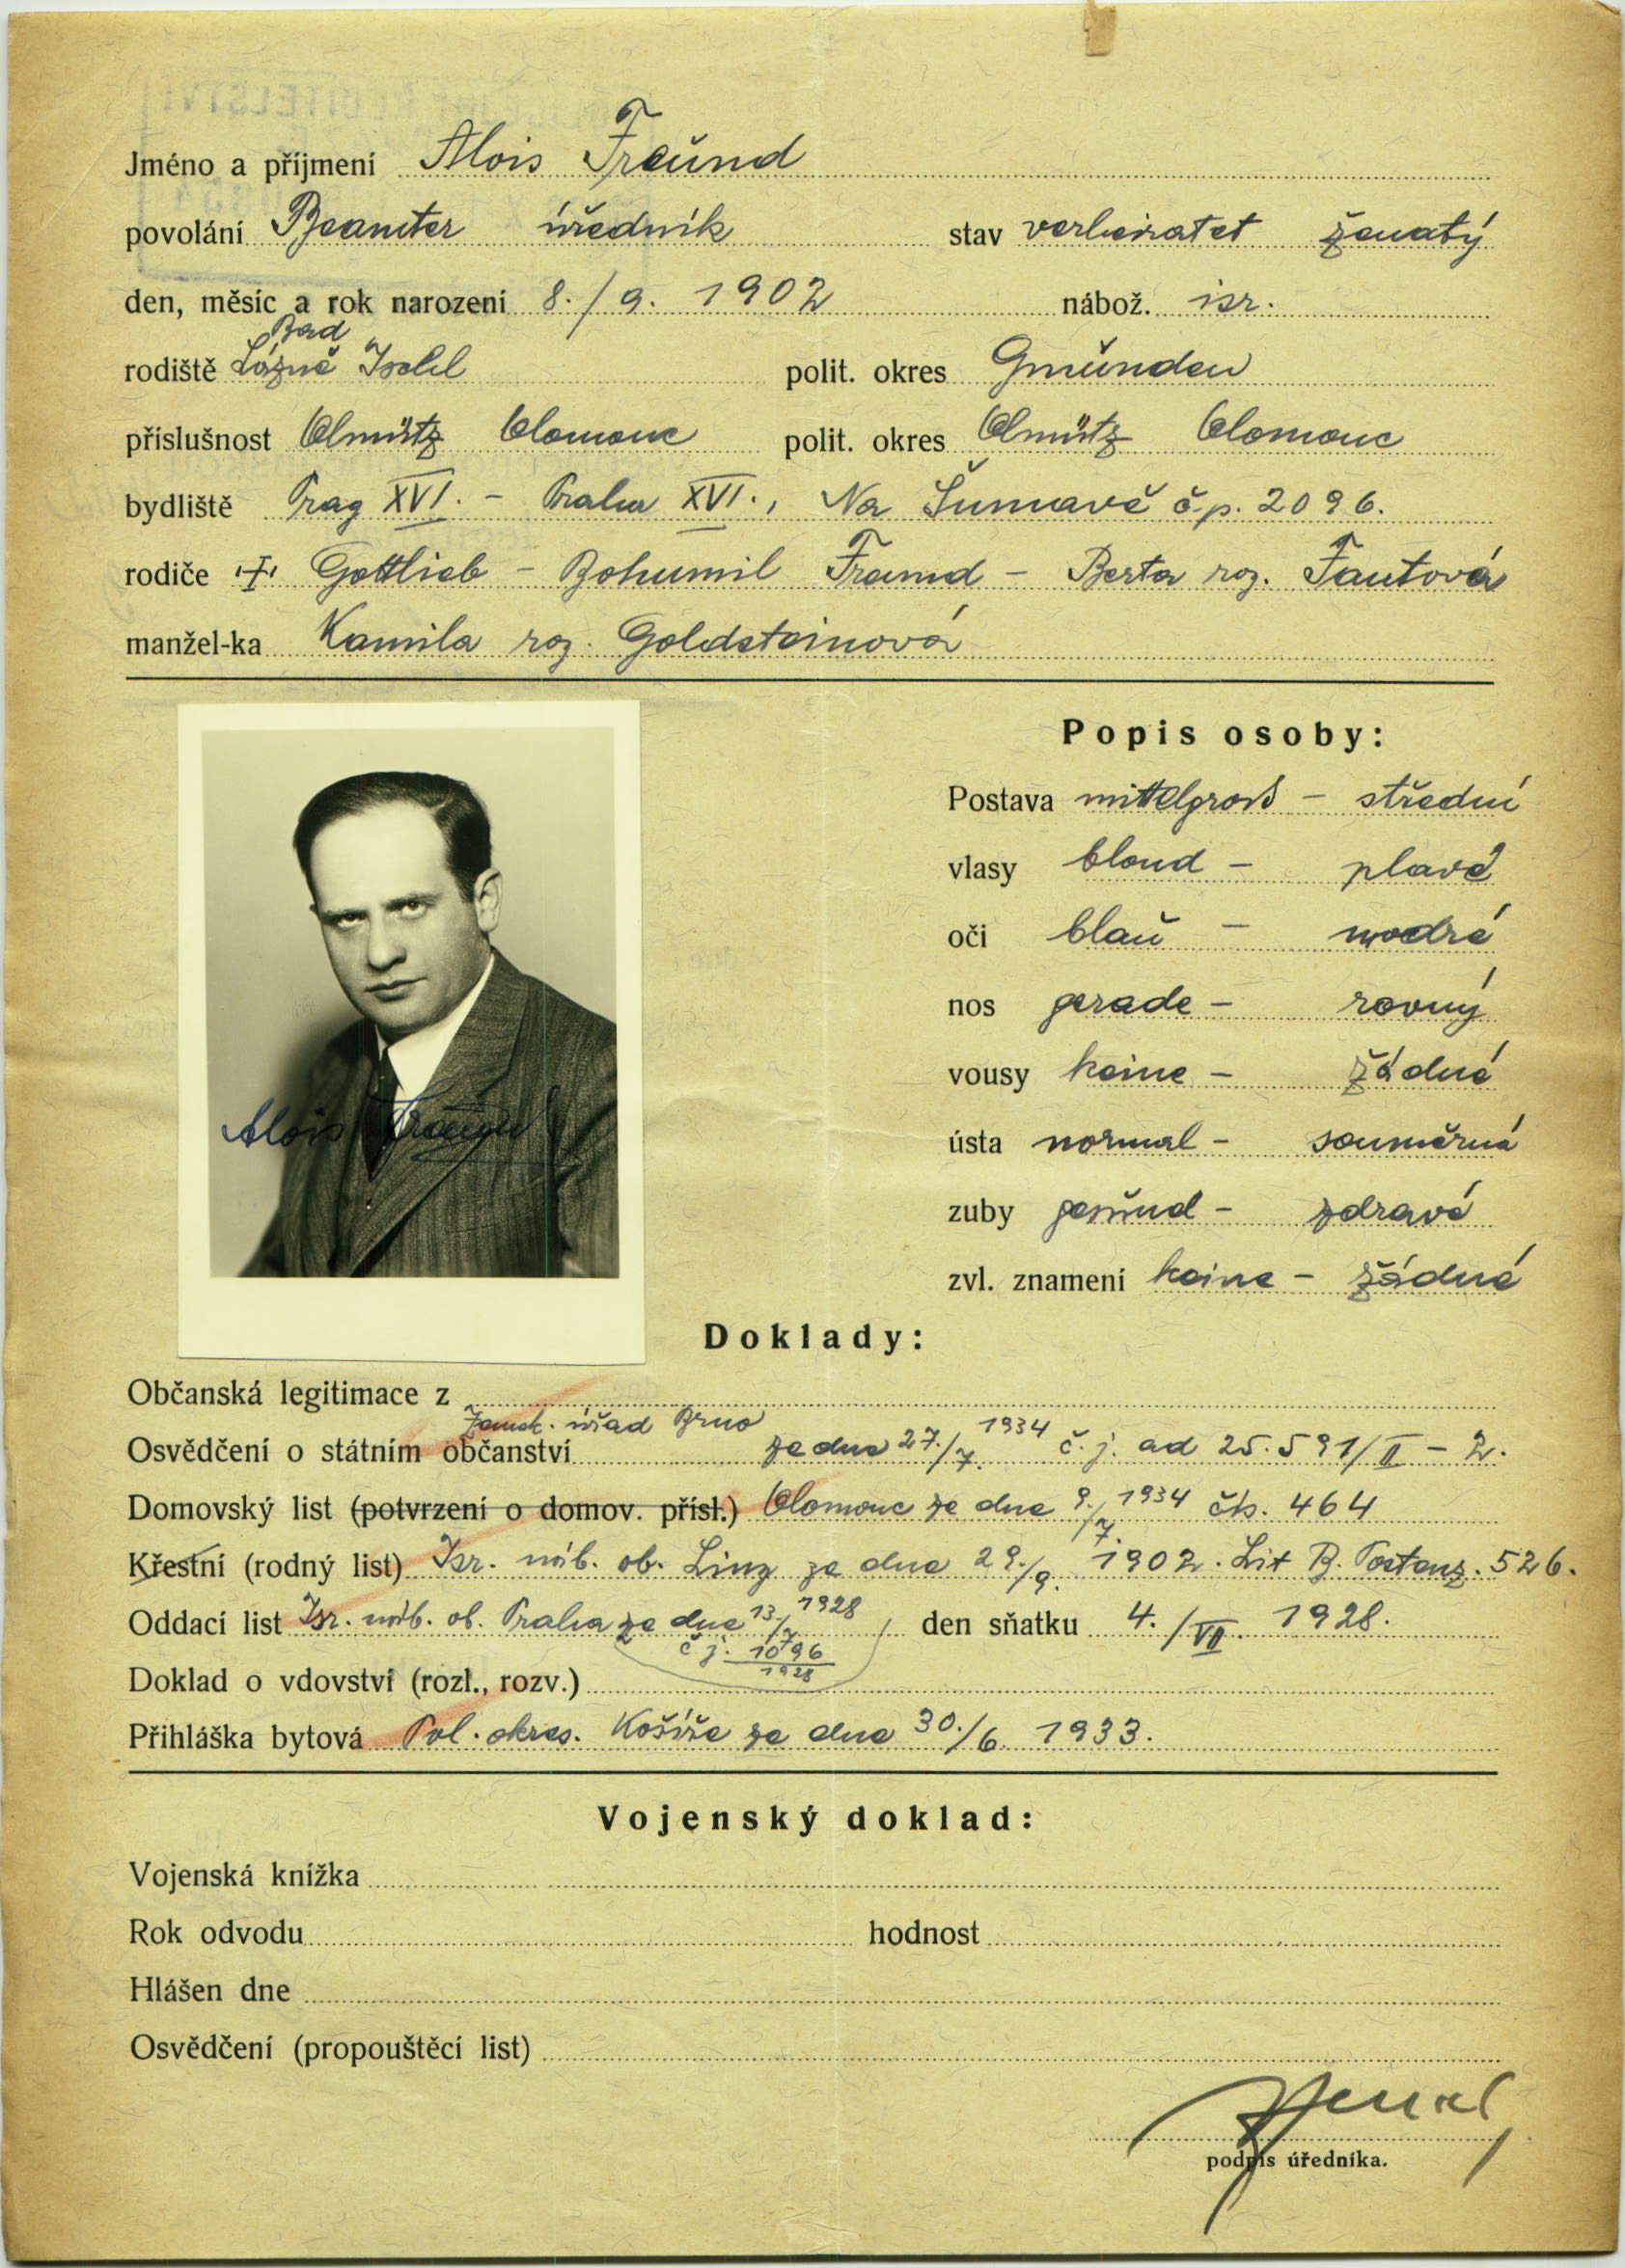 Jméno a příjmení Alois Freund
povolání Beamter úředník stav verheiratet ženatý
den, měsíc a rok narození 8./9. 1902 nábož. isr.
Bad
rodiště Lázně Ischl polit. okres Gmünden
příslušnost Olmütz Olomouc polit. okres Olmütz Olomouc
bydliště Prag XVI. – Praha XVI., Na Šumavě č.p. 2096.
rodiče Gottlieb – Bohumil Freund – Berta roz. Fantová
manžel-ka Kamila roz. Goldsteinová
Popis osoby:
Postava mittelgross – střední
vlasy blond – plavé
oči blau – modré
nos gerade – rovný
vousy keine – žádné
ústa normal – souměrná
zuby gesund – zdravé
zvl. znamení keine – žádné
Alois Freund
Doklady:
Občanská legitimace z
Zemsk. úřad Brno
Osvědčení o státním občanství ze dne 27./7. 1934 č. j. ad 25.591/II – 2.
Domovský list (potvrzení o domov. přísl.) Olomouc ze dne 9./7. 1934 čís. 464
Křestní (rodný list) Isr. náb. ob. Linz ze dne 29./9. 1902. Lit B. Postenz. 526.
Oddací list Isr. náb. ob. Praha ze dne 13./7 1928 den sňatku 4./VII. 1928.
č j. 1096/1928
Doklad o vdovství (rozl., rozv.)
Přihláška bytová Pol. okres. Košíře ze dne 30./6. 1933.
Vojenský doklad:
Vojenská knížka
Rok odvodu hodnost
Hlášen dne
Osvědčení (propouštěcí list)
podpis úředníka.